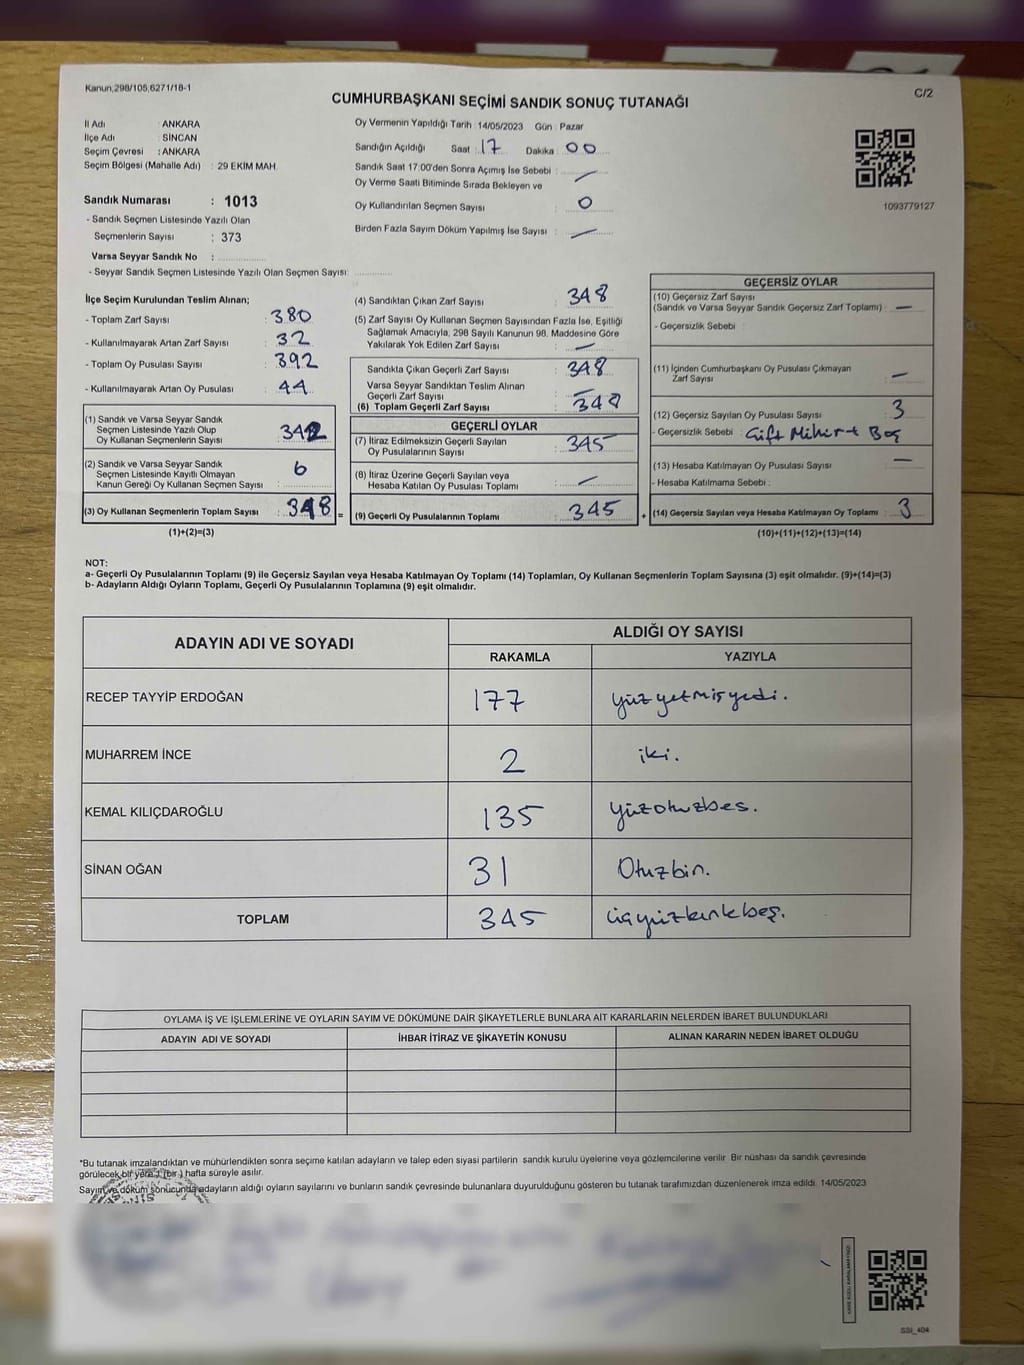 Kanun,298/105,6271/18-1
C/2
CUMHURBAŞKANI SEÇİMİ SANDIK SONUÇ TUTANAĞI
İl Adı : ANKARA
İlçe Adı : SİNCAN
Seçim Çevresi : ANKARA
Seçim Bölgesi (Mahalle Adı) : 29 EKİM MAH.
Sandık Numarası : 1013
- Sandık Seçmen Listesinde Yazılı Olan
Seçmenlerin Sayısı : 373
Varsa Seyyar Sandık No :
- Seyyar Sandık Seçmen Listesinde Yazılı Olan Seçmen Sayısı:
Oy Vermenin Yapıldığı Tarih : 14/05/2023 Gün : Pazar
Sandığın Açıldığı Saat : 17 Dakika : 00
Sandık Saat 17:00'den Sonra Açımış İse Sebebi : —
Oy Verme Saati Bitiminde Sırada Bekleyen ve
Oy Kullandırılan Seçmen Sayısı : 0
Birden Fazla Sayım Döküm Yapılmış İse Sayısı : —
1093779127
İlçe Seçim Kurulundan Teslim Alınan;
- Toplam Zarf Sayısı : 380
- Kullanılmayarak Artan Zarf Sayısı : 32
- Toplam Oy Pusulası Sayısı : 392
- Kullanılmayarak Artan Oy Pusulası : 44
(1) Sandık ve Varsa Seyyar Sandık
Seçmen Listesinde Yazılı Olup
Oy Kullanan Seçmenlerin Sayısı : 342
(2) Sandık ve Varsa Seyyar Sandık
Seçmen Listesinde Kayıtlı Olmayan
Kanun Gereği Oy Kullanan Seçmen Sayısı : 6
(3) Oy Kullanan Seçmenlerin Toplam Sayısı : 348 =
(1)+(2)=(3)
(4) Sandıktan Çıkan Zarf Sayısı : 348
(5) Zarf Sayısı Oy Kullanan Seçmen Sayısından Fazla İse, Eşitliği
Sağlamak Amacıyla, 298 Sayılı Kanunun 98. Maddesine Göre
Yakılarak Yok Edilen Zarf Sayısı : —
Sandıkla Çıkan Geçerli Zarf Sayısı : 348
Varsa Seyyar Sandıktan Teslim Alınan
Geçerli Zarf Sayısı : —
(6) Toplam Geçerli Zarf Sayısı : 348
GEÇERLİ OYLAR
(7) İtiraz Edilmeksizin Geçerli Sayılan
Oy Pusulalarının Sayısı : 345
(8) İtiraz Üzerine Geçerli Sayılan veya
Hesaba Katılan Oy Pusulası Toplamı : —
(9) Geçerli Oy Pusulalarının Toplamı : 345 +
GEÇERSİZ OYLAR
(10) Geçersiz Zarf Sayısı
(Sandık ve Varsa Seyyar Sandık Geçersiz Zarf Toplamı) : —
- Geçersizlik Sebebi :
(11) İçinden Cumhurbaşkanı Oy Pusulası Çıkmayan
Zarf Sayısı : —
(12) Geçersiz Sayılan Oy Pusulası Sayısı : 3
- Geçersizlik Sebebi : Çift Mühür + Boş
(13) Hesaba Katılmayan Oy Pusulası Sayısı : —
- Hesaba Katılmama Sebebi :
(14) Geçersiz Sayılan veya Hesaba Katılmayan Oy Toplamı : 3
(10)+(11)+(12)+(13)=(14)
NOT:
a- Geçerli Oy Pusulalarının Toplamı (9) ile Geçersiz Sayılan veya Hesaba Katılmayan Oy Toplamı (14) Toplamları, Oy Kullanan Seçmenlerin Toplam Sayısına (3) eşit olmalıdır. (9)+(14)=(3)
b- Adayların Aldığı Oyların Toplamı, Geçerli Oy Pusulalarının Toplamına (9) eşit olmalıdır.
ADAYIN ADI VE SOYADI
ALDIĞI OY SAYISI
RAKAMLA YAZIYLA
RECEP TAYYİP ERDOĞAN 177 yüzyetmişyedi.
MUHARREM İNCE 2 iki.
KEMAL KILIÇDAROĞLU 135 yüzotuzbes.
SİNAN OĞAN 31 Otuzbir.
TOPLAM 345 üçyüzkırkbeş.
OYLAMA İŞ VE İŞLEMLERİNE VE OYLARIN SAYIM VE DÖKÜMÜNE DAİR ŞİKAYETLERLE BUNLARA AİT KARARLARIN NELERDEN İBARET BULUNDUKLARI
ADAYIN ADI VE SOYADI İHBAR İTİRAZ VE ŞİKAYETİN KONUSU ALINAN KARARIN NEDEN İBARET OLDUĞU
*Bu tutanak imzalandıktan ve mühürlendikten sonra seçime katılan adayların ve talep eden siyasi partilerin sandık kurulu üyelerine veya gözlemcilerine verilir. Bir nüshası da sandık çevresinde
görülecek bir yere 1 (bir ) hafta süreyle asılır.
Sayım ve döküm sonucunda adayların aldığı oyların sayılarını ve bunların sandık çevresinde bulunanlara duyurulduğunu gösteren bu tutanak tarafımızdan düzenlenerek imza edildi. 14/05/2023
SSI_404